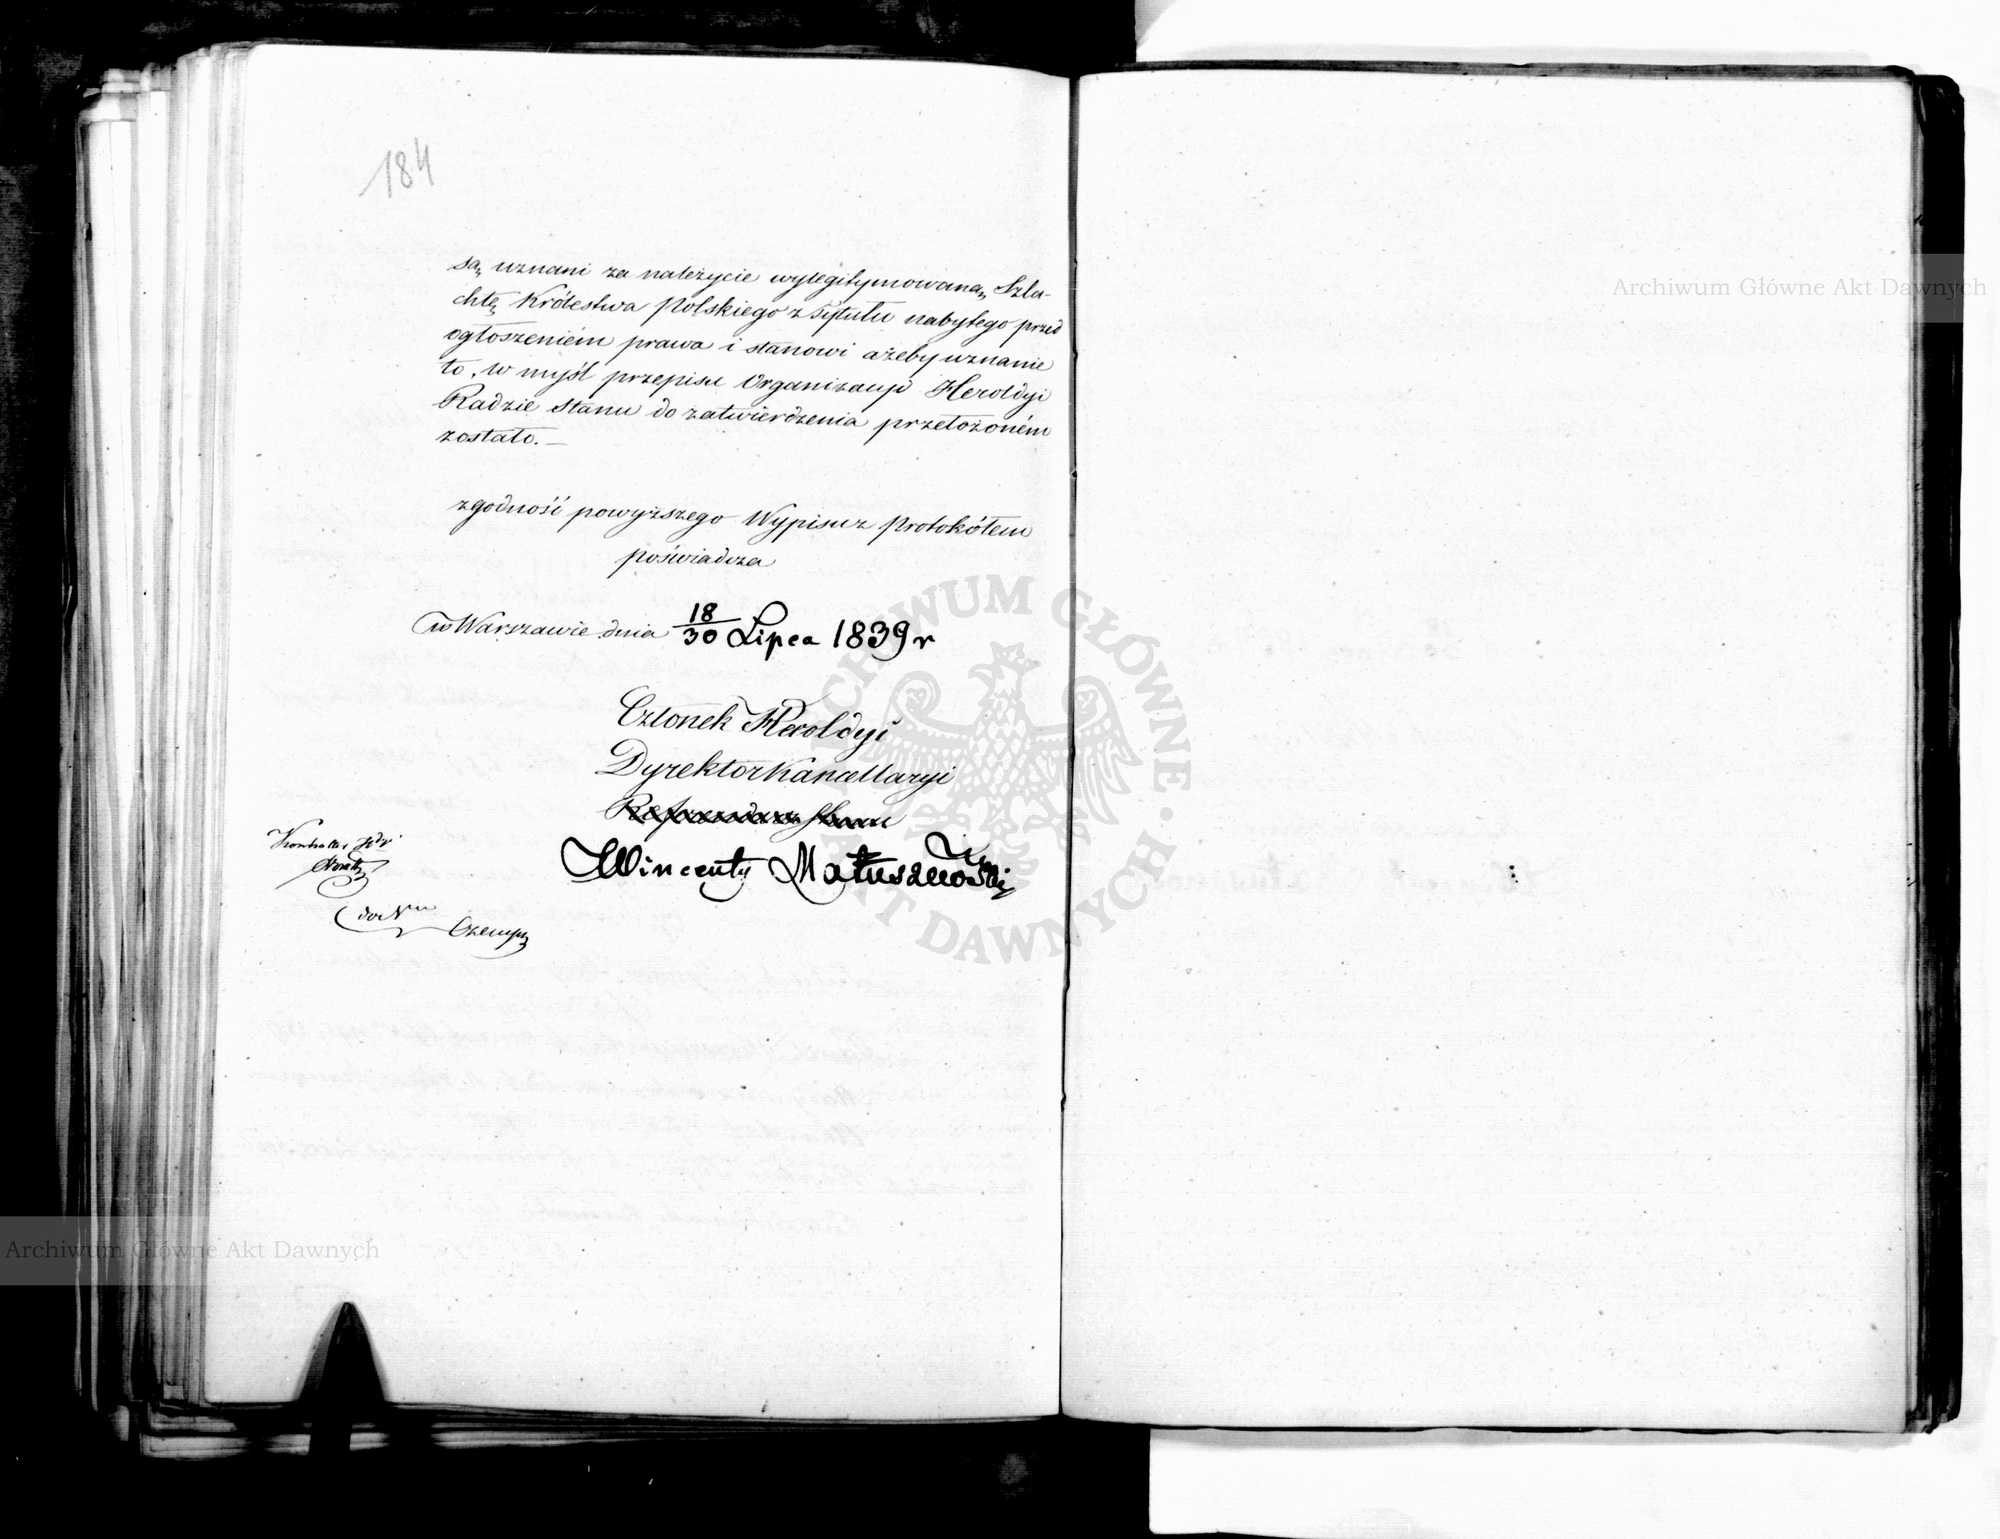 184
są uznani za należycie wylegitymowaną Szla-
chtę Królestwa Polskiego z Tytułu nabytego przed
ogłoszeniém prawa i stanowi ażeby uznanie
to, w myśl przepisu Organizacyi Heroldyi
Radzie Stanu do zatwierdzenia przełożoném
zostało. —
zgodność powyższego Wypisu z Protokółem
poświadcza
w Warszawie dnia 18/30 Lipca 1839 r
Członek Heroldyi
Dyrektor Kancellaryi
Referendarz Stanu
Wincenty Matuszewski
ARCHIWUM GŁÓWNE · AKT DAWNYCH ·
Archiwum Główne Akt Dawnych
Archiwum Główne Akt Dawnych